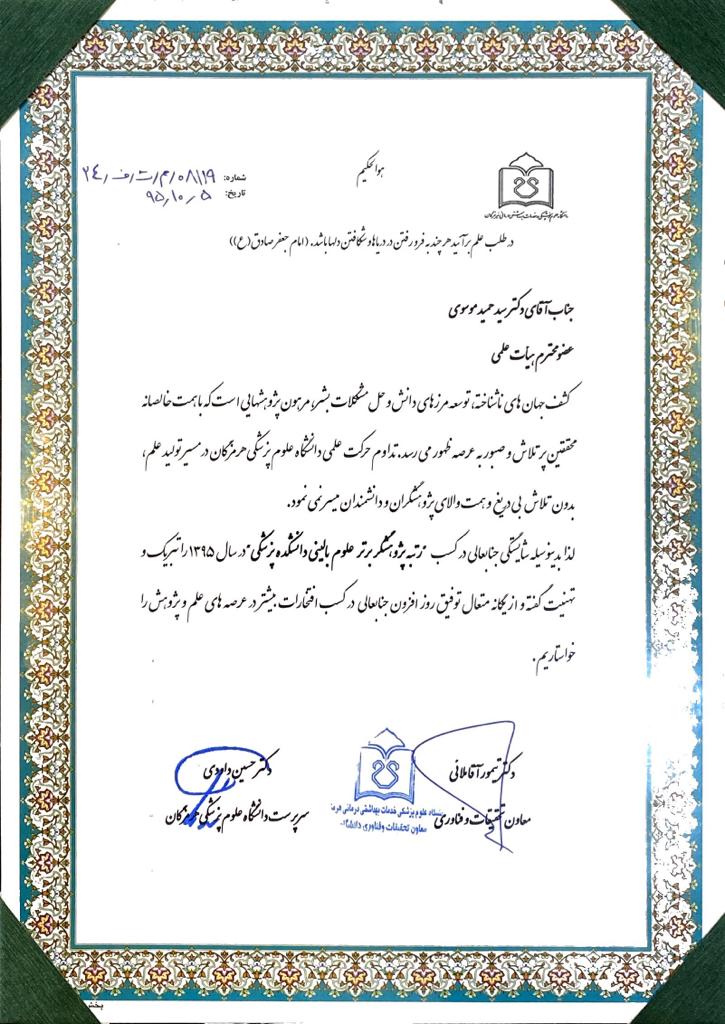 هوالحکیم
دانشگاه علوم پزشکی و خدمات بهداشتی درمانی هرمزگان
شماره: ۲۴/ف/ت/م/۰۸۱۱۹
تاریخ: ۹۵/۱۰/۵
در طلب علم برآئید هر چند به فرو رفتن در دریاها و شکافتن دلها باشد. (امام جعفر صادق (ع))
جناب آقای دکتر سید حمید موسوی
عضو محترم هیأت علمی
کشف جهان های ناشناخته، توسعه مرزهای دانش و حل مشکلات بشر، مرهون پژوهشهایی است که با همت خالصانه
محققین پر تلاش و صبور به عرصه ظهور می رسد. تداوم حرکت علمی دانشگاه علوم پزشکی هرمزگان در مسیر تولید علم،
بدون تلاش بی دریغ و همت والای پژوهشگران و دانشمندان میسر نمی نمود.
لذا بدینوسیله شایستگی جنابعالی در کسب "رتبه پژوهشگر برتر علوم بالینی دانشکده پزشکی" در سال ۱۳۹۵ را تبریک و
تهنیت گفته و از یگانه متعال توفیق روز افزون جنابعالی در کسب افتخارات بیشتر در عرصه های علم و پژوهش را
خواستاریم.
دکتر تیمور آقاملائی
معاون تحقیقات و فناوری
دکتر حسین داودی
سرپرست دانشگاه علوم پزشکی هرمزگان
دانشگاه علوم پزشکی خدمات بهداشتی درمانی هرمز
معاون تحقیقات وفناوری دانشگا